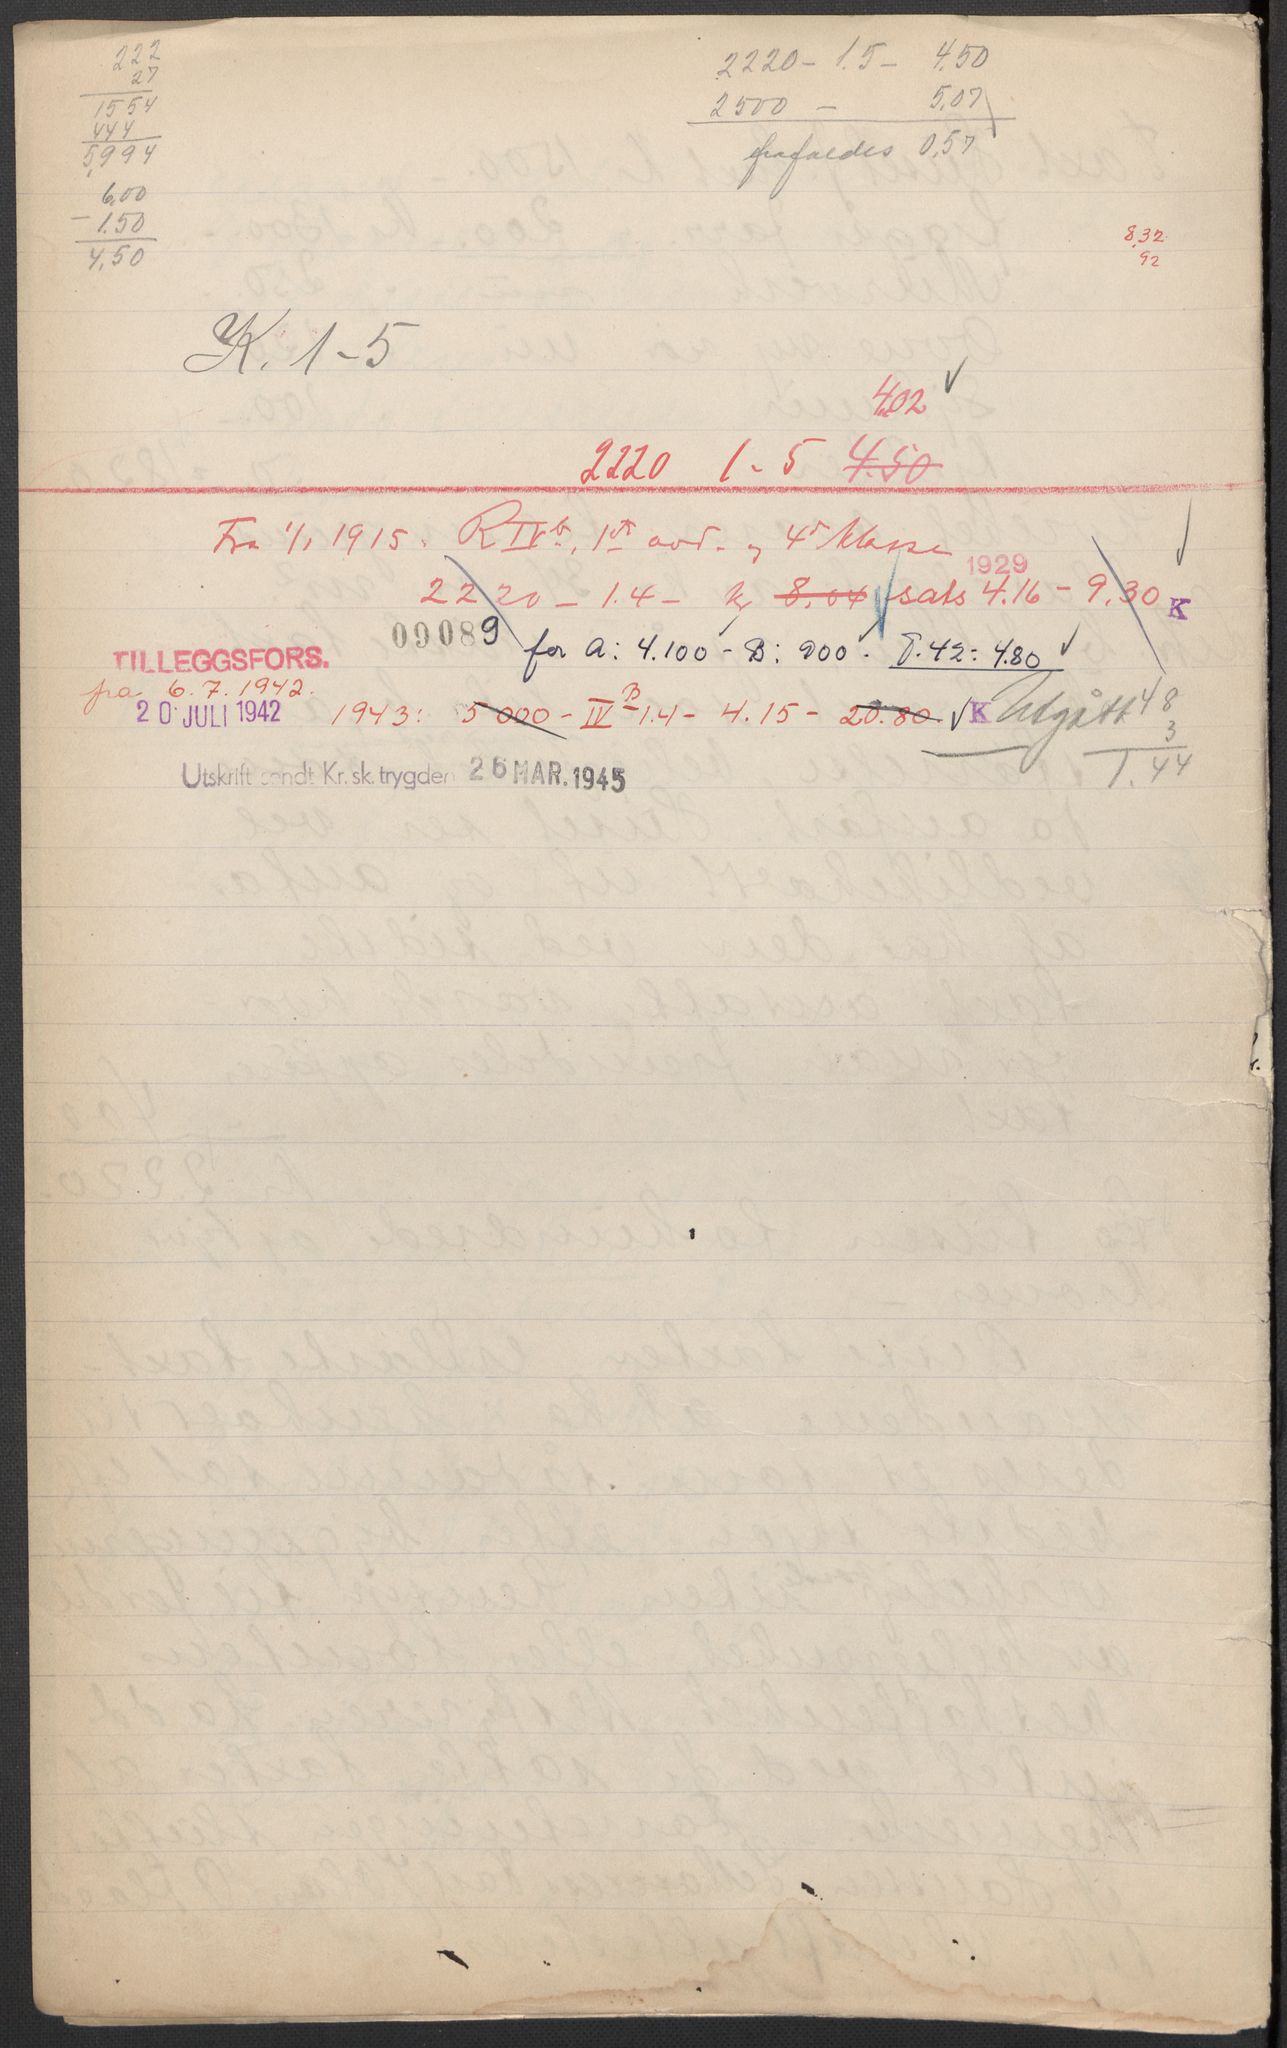 222
27
1554
444
5,994
6,00
- 1.50
4,50
2220 - 1.5 - 4,50
2500 - 5,07
frafaldes 0,57
8,32
92
K. 1-5
4,02 ✓
2220 1-5 4.50
Fra 1/1 1915. R IV b, 1ste avd. og 4de klasse
1929
2220 - 1.4 - kr 8,04 sats 4.16 - 9,30 K
00089 for A: 4.100 - B: 900. T.42: 4.80 ✓
TILLEGGSFORS.
fra 6.7.1942.
20 JULI 1942
1943: 5000 - IV B 1.4 - 4.15 - 20.80 ✓ K Utgått
48
3
1.44
Utskrift sendt Kr.sk.trygden 26 MAR. 1945